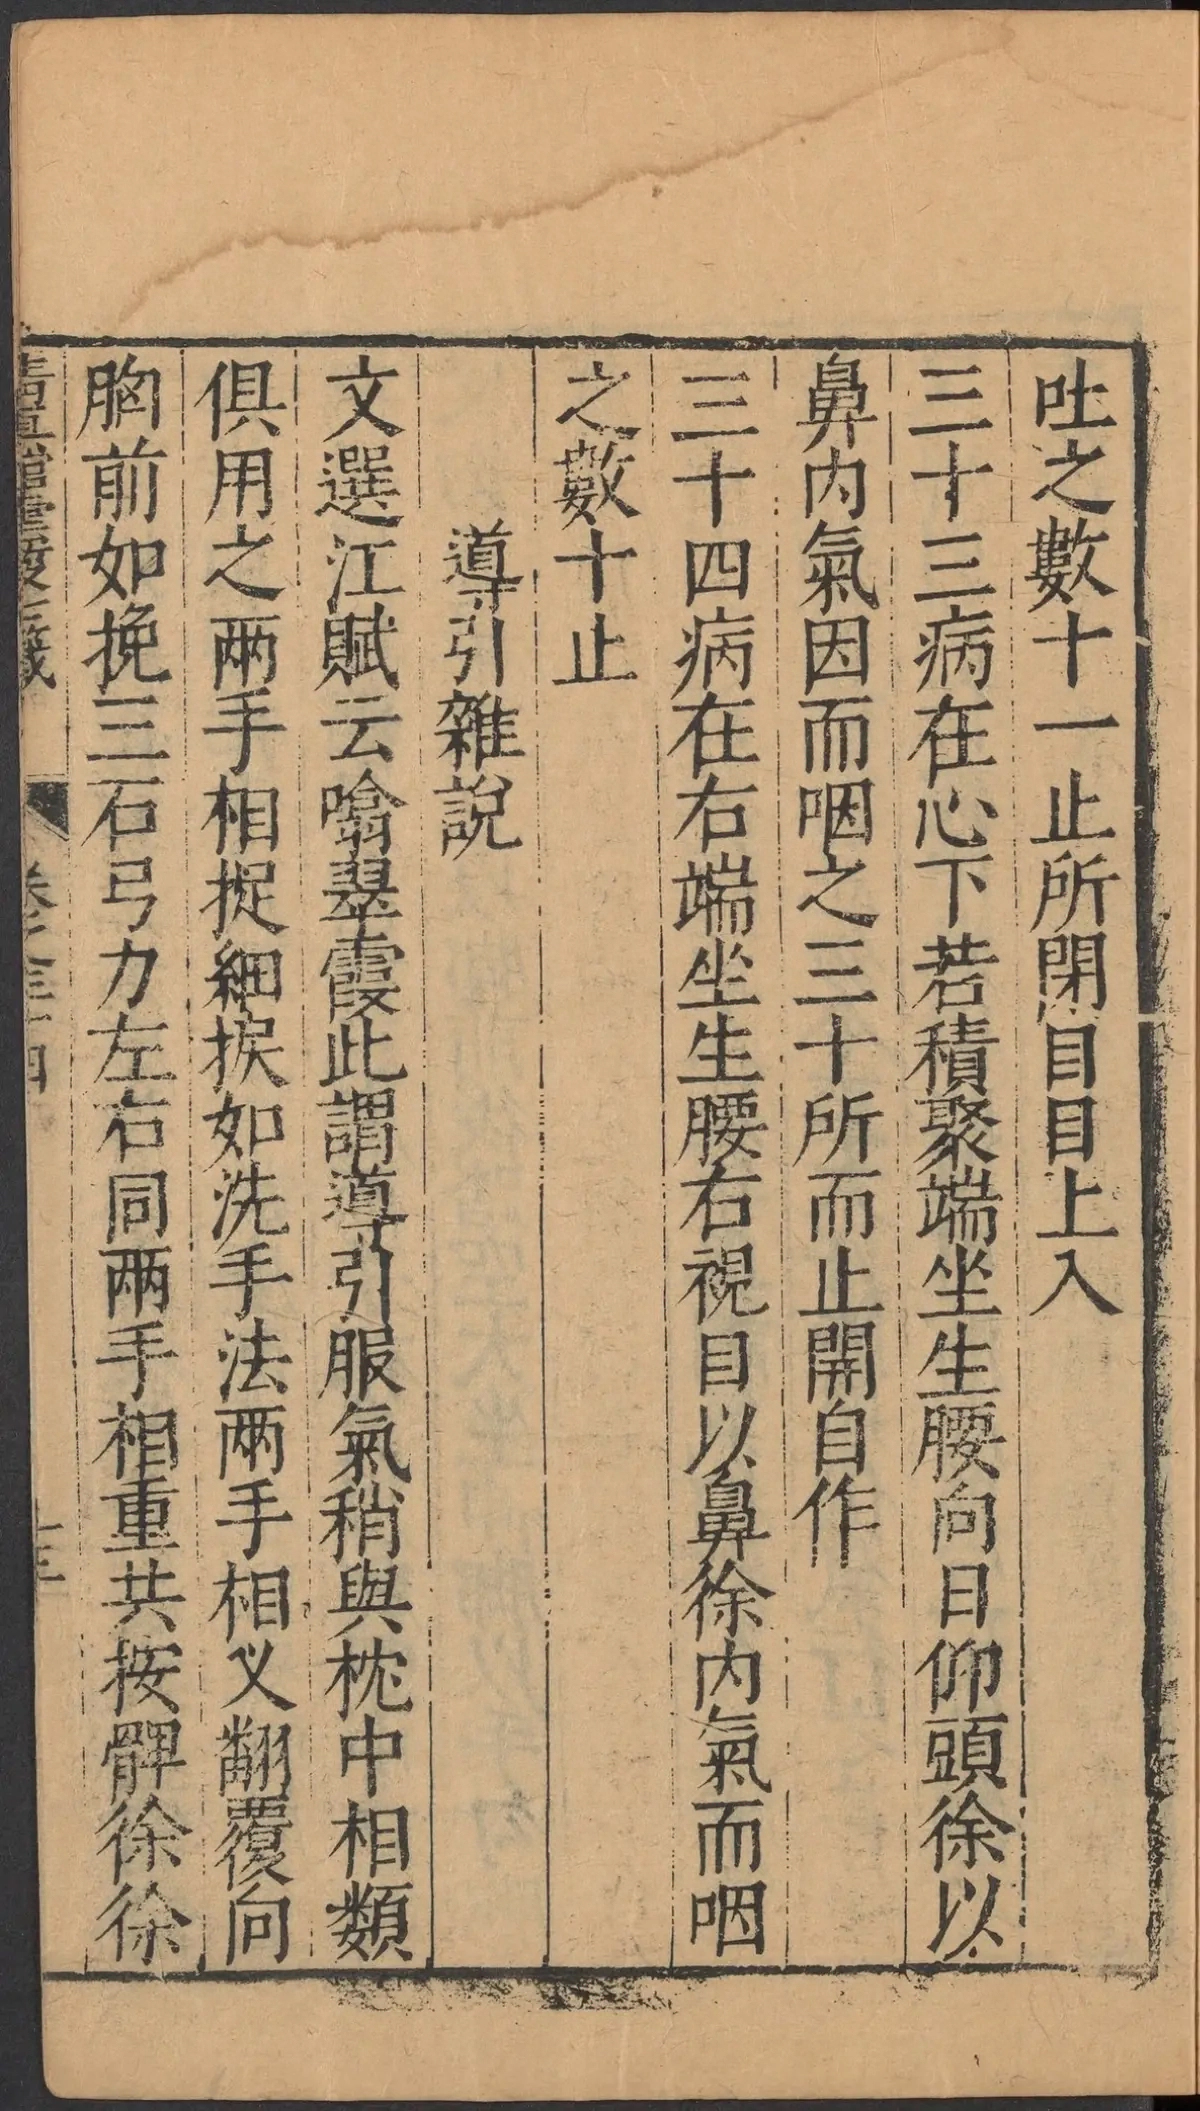 吐之數十一止所閉目目上入
三十三病在心下若積聚端坐生腰向日仰頭徐以
鼻内氣因而咽之三十所而止開自作
三十四病在右端坐生腰右視目以鼻徐内氣而咽
之數十止
導引雜說
文選江賦云噏翠霞此謂導引服氣稍與枕中相類
俱用之兩手相捉細捩如洗手法兩手相叉翻覆向
胸前如挽三石弓力左右同兩手相重共按髀徐徐